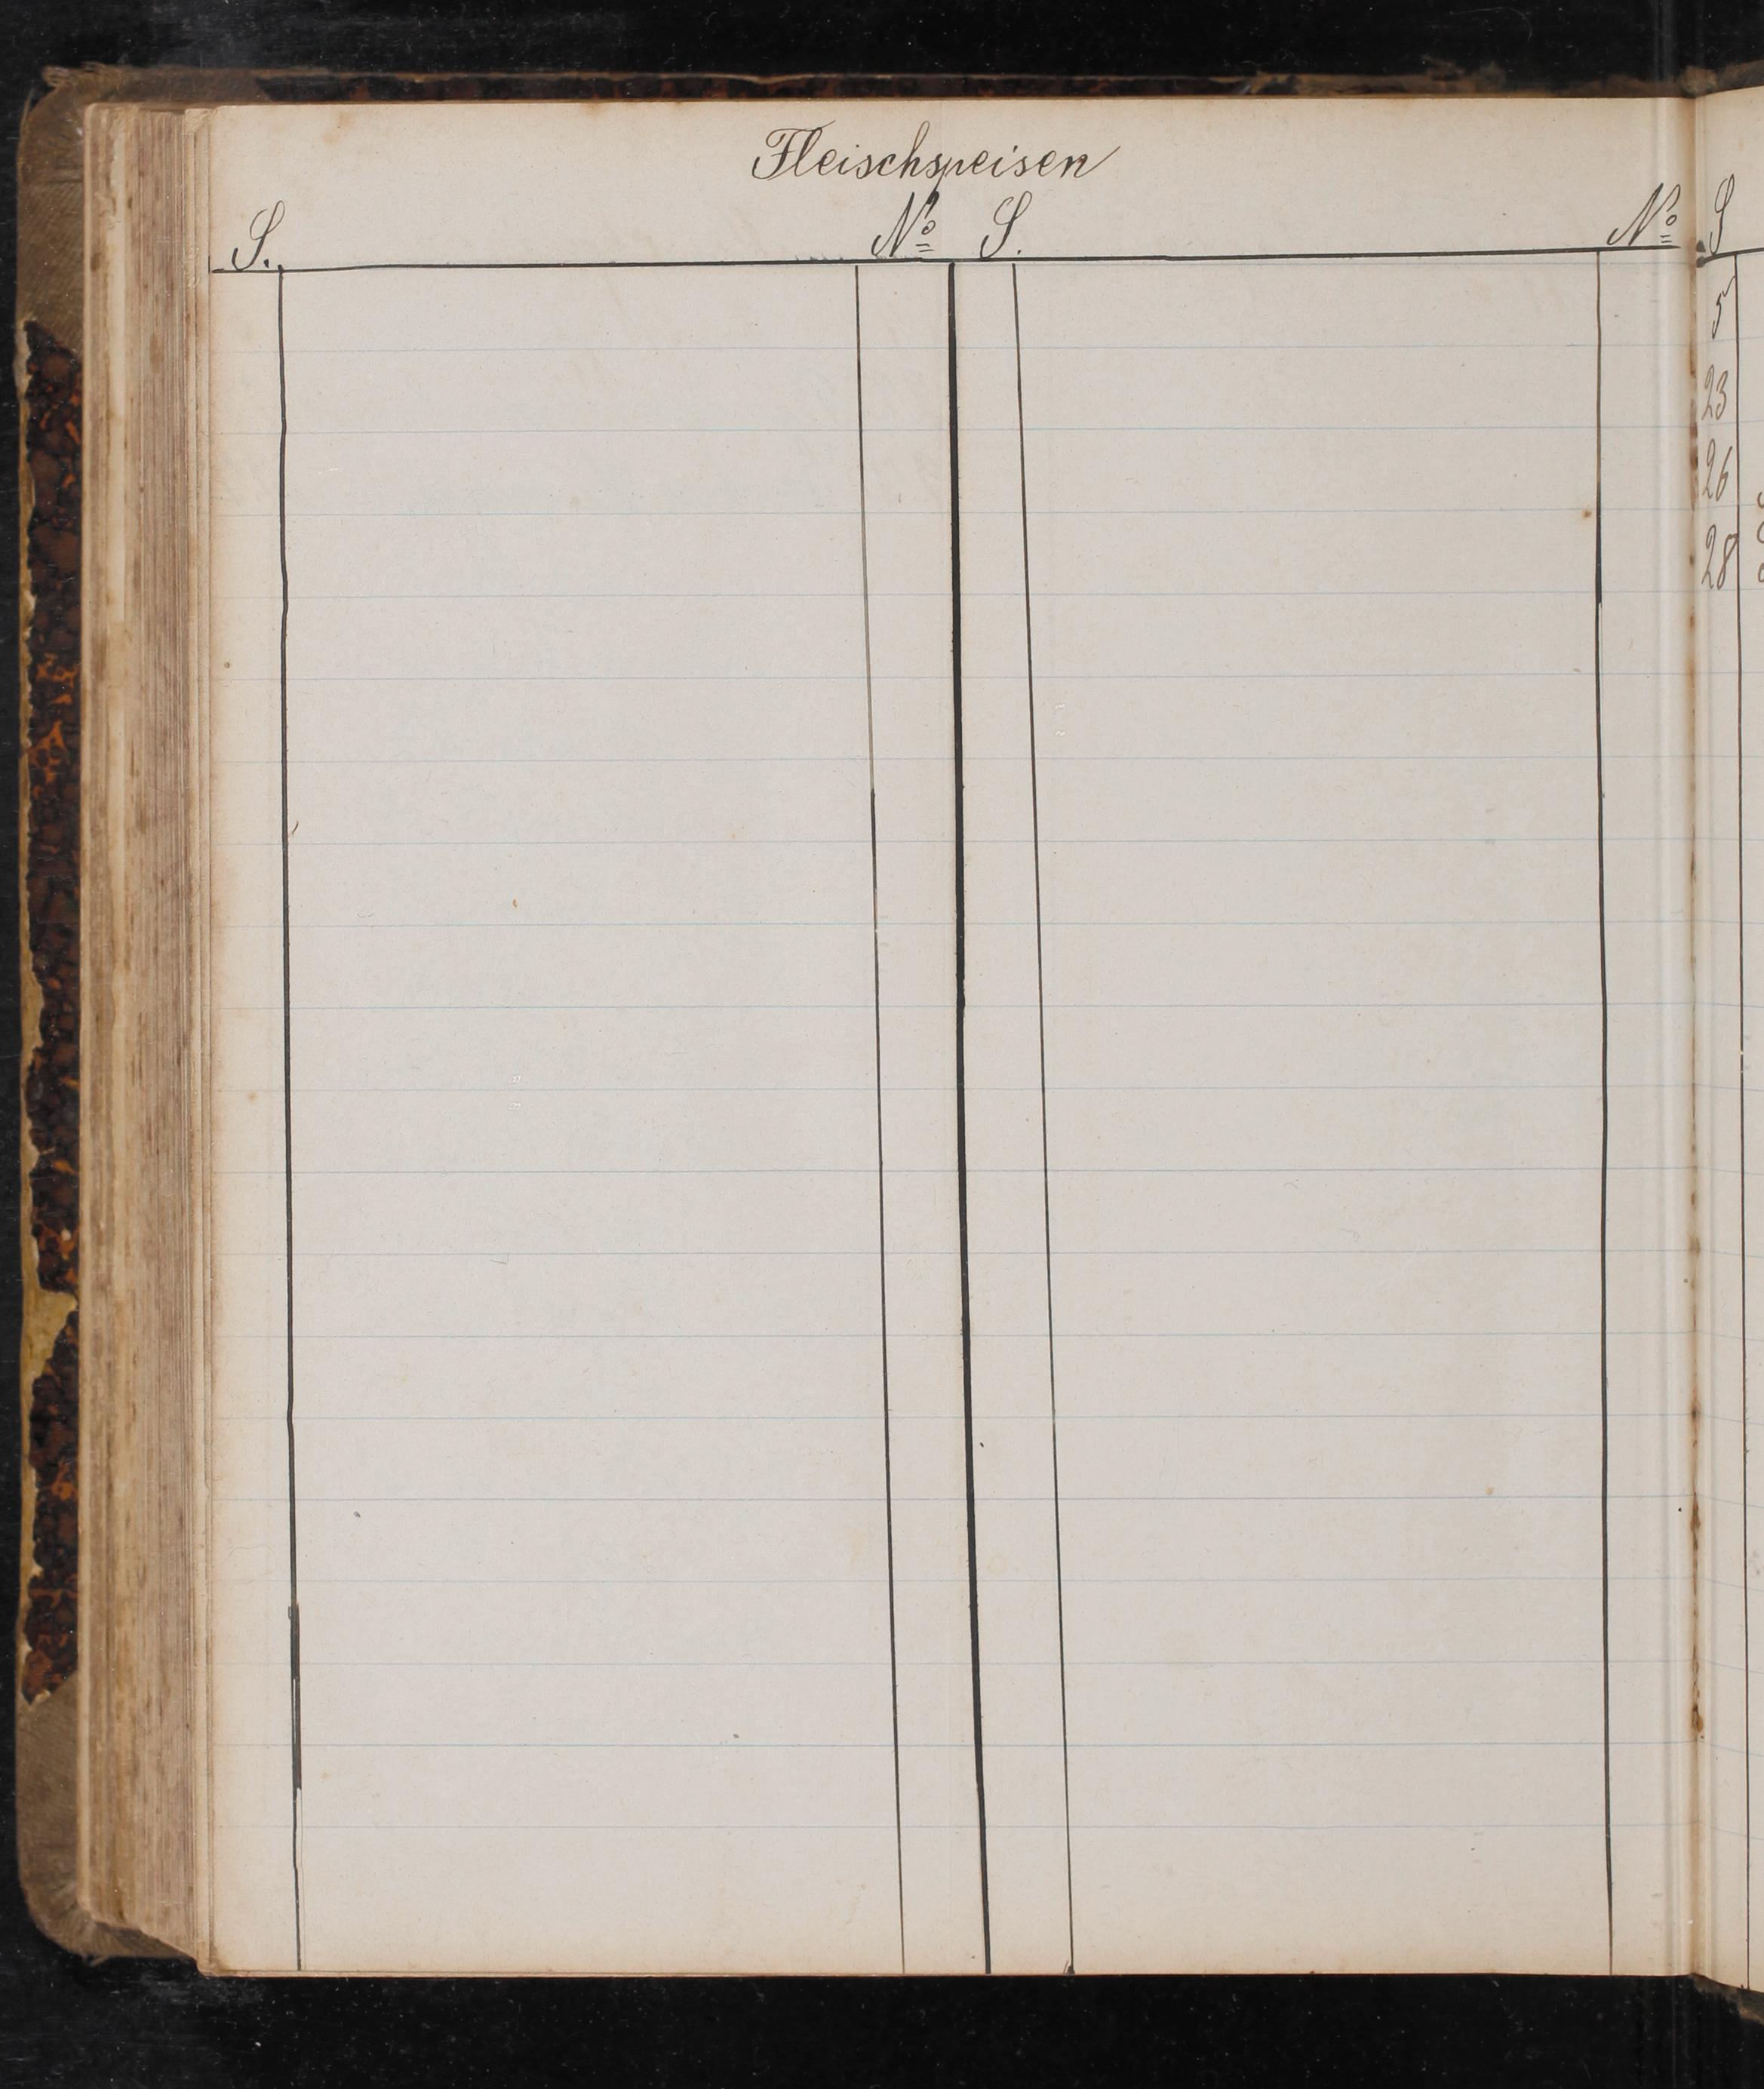 Fleischspeisen
S. No S. No S
5
23
26
28